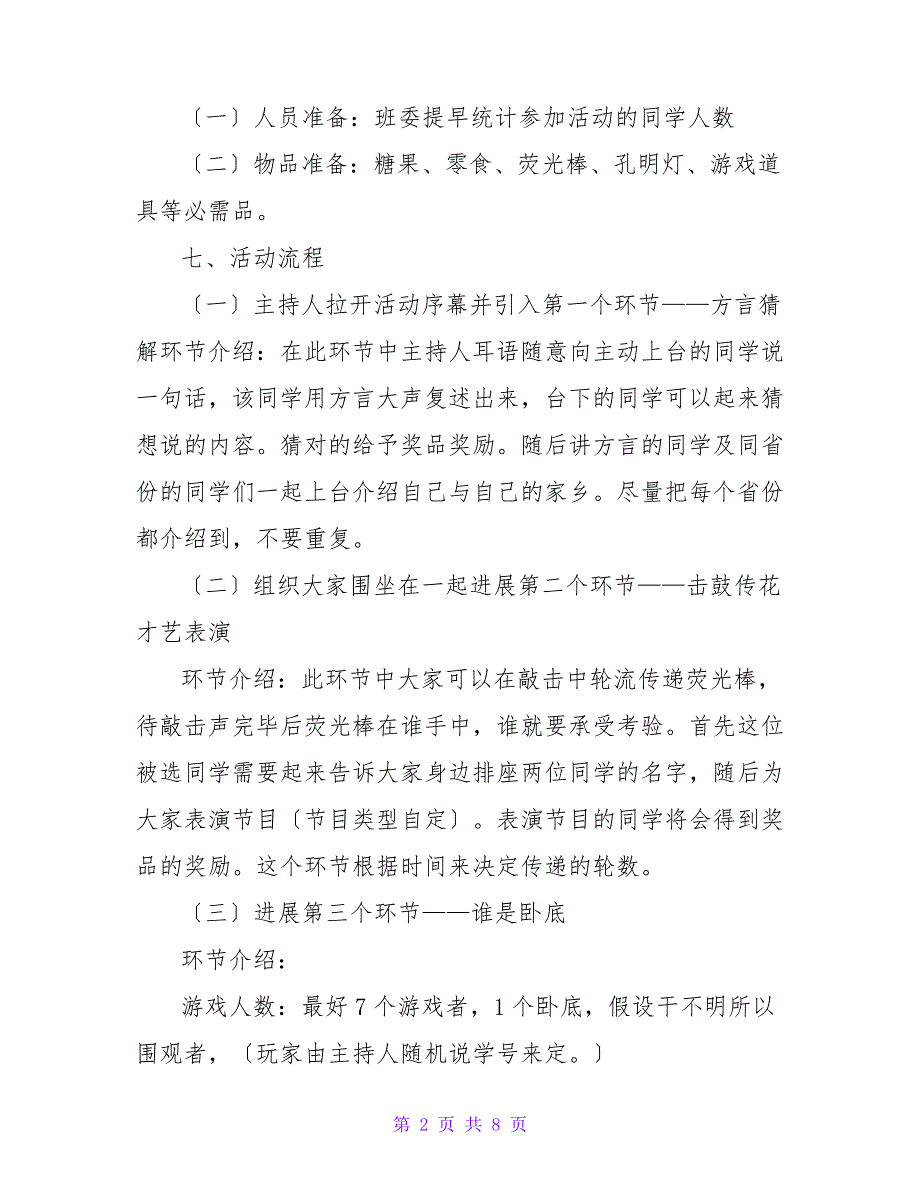 〔一〕人员准备：班委提早统计参加活动的同学人数
〔二〕物品准备：糖果、零食、荧光棒、孔明灯、游戏道
具等必需品。
七、活动流程
〔一〕主持人拉开活动序幕并引入第一个环节——方言猜
解环节介绍：在此环节中主持人耳语随意向主动上台的同学说
一句话，该同学用方言大声复述出来，台下的同学可以起来猜
想说的内容。猜对的给予奖品奖励。随后讲方言的同学及同省
份的同学们一起上台介绍自己与自己的家乡。尽量把每个省份
都介绍到，不要重复。
〔二〕组织大家围坐在一起进展第二个环节——击鼓传花
才艺表演
环节介绍：此环节中大家可以在敲击中轮流传递荧光棒，
待敲击声完毕后荧光棒在谁手中，谁就要承受考验。首先这位
被选同学需要起来告诉大家身边排座两位同学的名字，随后为
大家表演节目〔节目类型自定〕。表演节目的同学将会得到奖
品的奖励。这个环节根据时间来决定传递的轮数。
〔三〕进展第三个环节——谁是卧底
环节介绍：
游戏人数：最好 7 个游戏者，1 个卧底，假设干不明所以
围观者，〔玩家由主持人随机说学号来定。〕
第 2 页 共 8 页